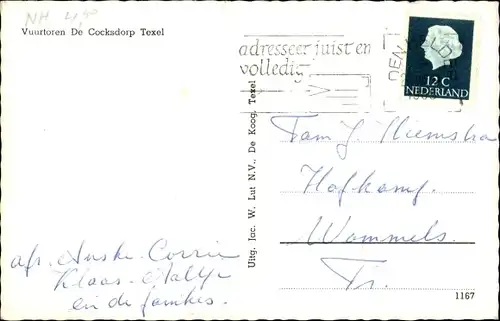 NH 4,50
Vuurtoren De Cocksdorp Texel
adresseer juist en
volledig
DEN HELDER
12 C
NEDERLAND
Uitg. Joc. W. Lut N.V., De Koog, Texel
Fam J. Hiemstra
Hofkamp.
Wommels.
Fr.
afs. Corrie
Klaas
en de
1167